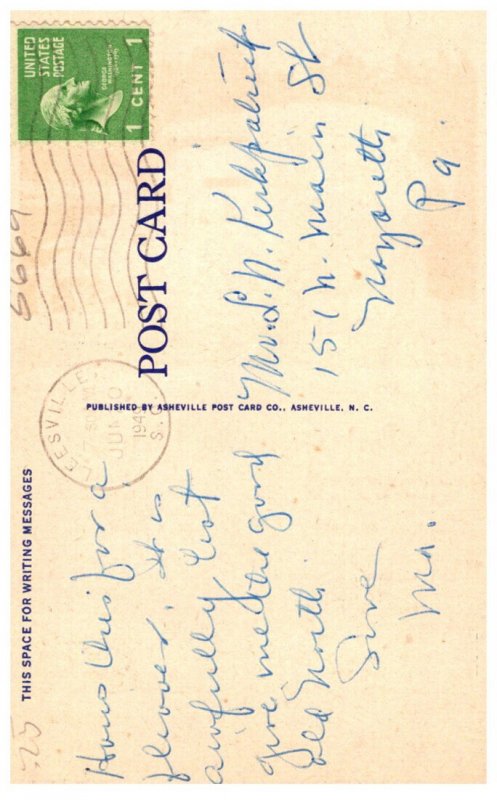 THIS SPACE FOR WRITING MESSAGES
Hows this for a
flower. It is
awfully hot
give me the good
old North
Love
Ma.
POST CARD
PUBLISHED BY ASHEVILLE POST CARD CO., ASHEVILLE, N. C.
UNITED
STATES
POSTAGE
GEORGE
WASHINGTON
1 CENT 1
LEESVILLE
JUN
194
S.C.
Mr. L. N. Kirkpatrick
151 N. Main St
Nazareth
Pa.
6669
.25